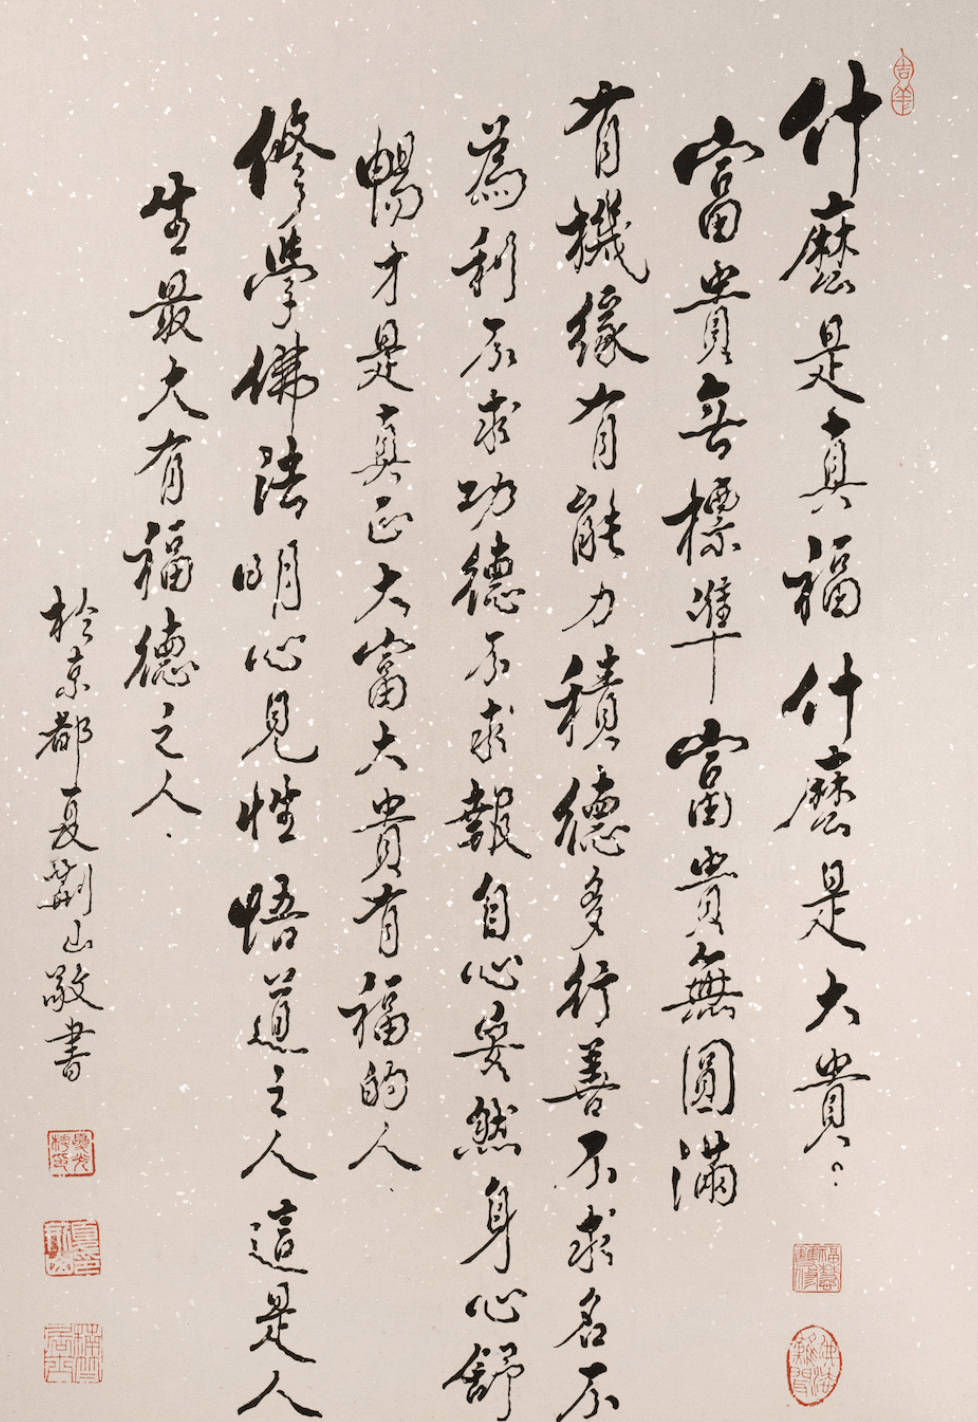 什麽是真福什麽是大貴
富貴無標準富貴無圓滿
有機緣有能力積德多行善不求名不
為利不求功德不求報自心安然身心舒
暢才是真正大富大貴有福的人
修學佛法明心見性悟道之人這是人
生最大有福德之人
於京都夏荊山敬書
吉羊
福慧雙修